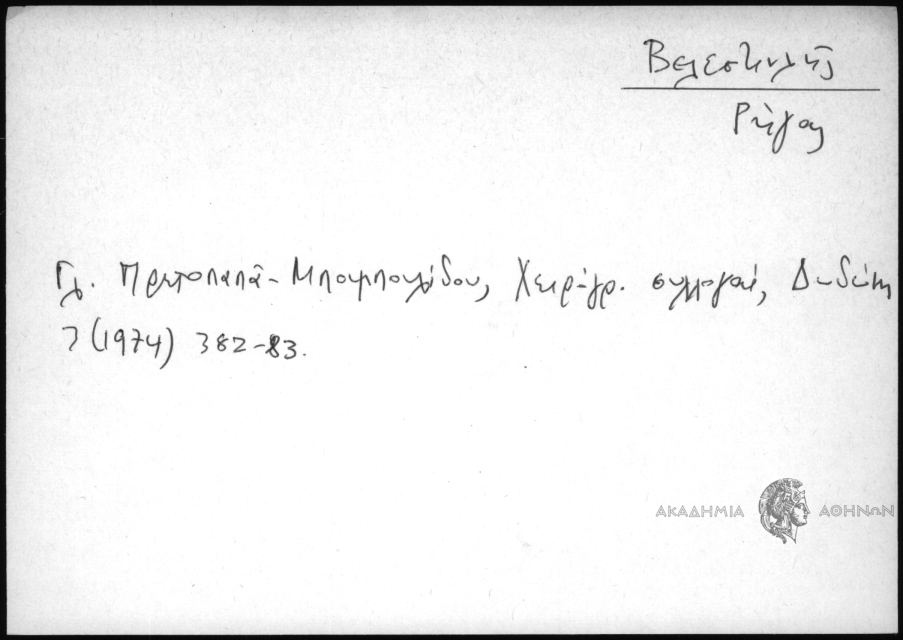 Βελεστινλῆς
Ρήγας
Γλ. Πρωτοπαπᾶ-Μπουμπουλίδου, Χειρόγρ. συλλογαί, Δωδώνη
3 (1974) 382-83.
ΑΚΑΔΗΜΙΑ ΑΘΗΝΩΝ